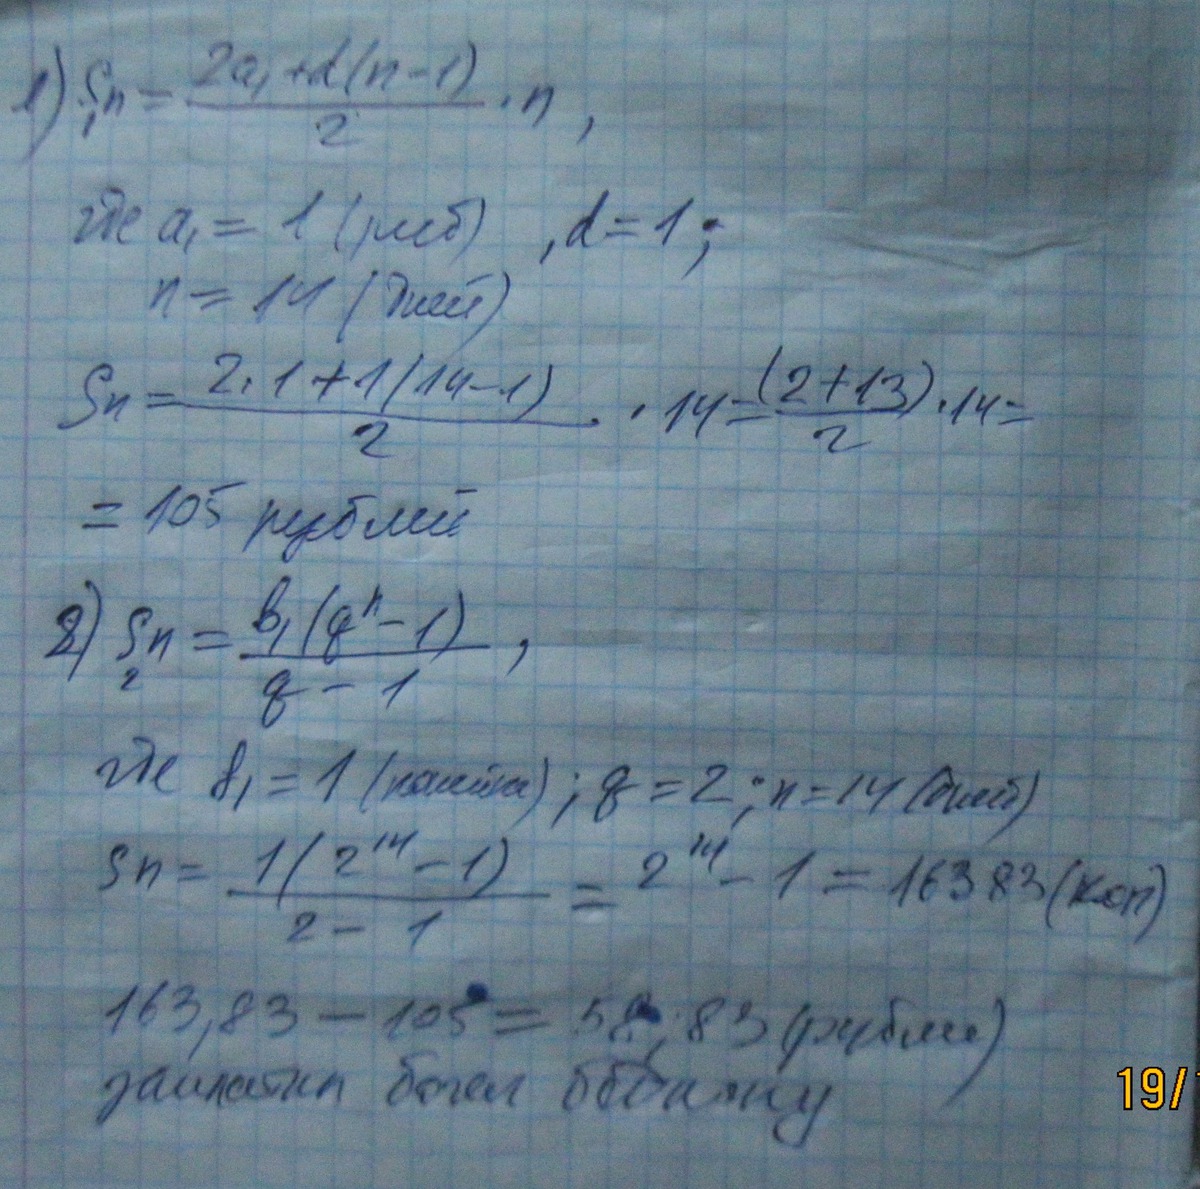 1) S₁n = (2a₁+d(n-1))/2 · n ,
где a₁ = 1 (руб) , d = 1 ;
n = 14 (дней)
Sn = (2·1+1(14-1))/2 · 14 = (2+13)/2 · 14 =
= 105 рублей
2) S₂n = (b₁(qⁿ-1))/(q-1) ,
где b₁ = 1 (копейка) ; q = 2 ; n = 14 (дней)
Sn = (1(2¹⁴-1))/(2-1) = 2¹⁴ - 1 = 16383 (коп)
163,83 - 105 = 58,83 (рубли)
заплатил богач
19/